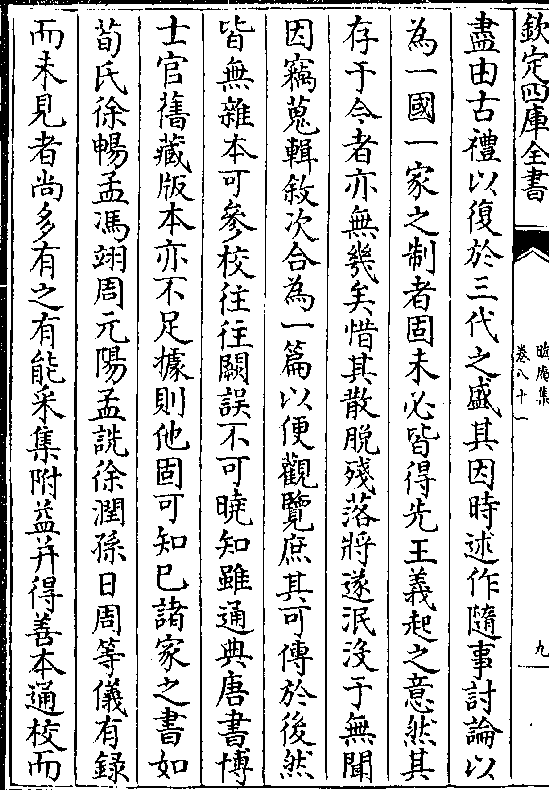 欽定四庫全書
晦庵集
卷八十一
九
盡由古禮以復於三代之盛其因時述作隨事討論以
為一國一家之制者固未必皆得先王義起之意然其
存于今者亦無幾矣惜其散脫殘落將遂泯沒于無聞
因竊蒐輯敘次合為一篇以便觀覽庶其可傳於後然
皆無雜本可參校往往闕誤不可曉知雖通典唐書博
士官舊藏版本亦不足據則他固可知已諸家之書如
荀氏徐暢孟馮翊周元陽孟詵徐潤孫日周等儀有錄
而未見者尚多有之有能采集附益并得善本通校而